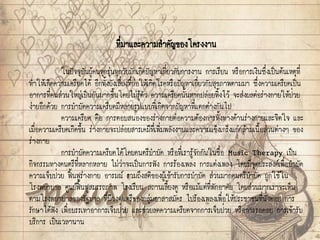 ที่มาและความสำคัญของโครงงาน
ในปัจจุบันผู้คนทุกรุ่นทุกวัยมักเกิดปัญหาเกี่ยวกับการงาน การเรียน หรือการเงินซึ่งเป็นต้นเหตุที่
ทำให้เกิดความเครียดได้ อีกทั้งยังเสี่ยงที่จะให้เกิดโรคหรือปัญหาเกี่ยวกับสุขภาพตามมา ซึ่งความเครียดเป็น
อาการที่คนส่วนใหญ่เป็นกันมากขึ้นโดยไม่รู้ตัว ความเครียดนั้นหากปล่อยทิ้งไว้ จะส่งผลต่อร่างกายให้ป่วย
ง่ายอีกด้วย การบำบัดความเครียดมีหลายรูปแบบที่เกิดจากปัญหาที่แตกต่างกันไป
ความเครียด คือ การตอบสนองของร่างกายต่อความต้องการทั้งทางด้านร่างกายและจิตใจ และ
เมื่อความเครียดเกิดขึ้น ร่างกายจะปล่อยสารเคมีที่เพิ่มพลังงานและความแข็งแกร่งแก่กล้ามเนื้อส่วนต่างๆ ของ
ร่างกาย
การบำบัดความเครียดได้โดยดนตรีบำบัด หรือที่เรารู้จักกันในชื่อ Music Therapy เป็น
กิจกรรมทางดนตรีที่หลากหลาย ไม่ว่าจะเป็นการฟัง การร้องเพลง การแต่งเพลง
ความเจ็บป่วย ฟื้นฟูร่างกาย อารมณ์ รวมถึงสติของผู้เข้ารับการบำบัด ส่วนมากดนตรีบำบัด ถูกใช้ใน
โรงพยาบาล
รักษาได้ฟัง เพื่อบรรเทาอาการเจ็บป่วย และช่วยลดความเครียดจากการเจ็บป่วย
บริการ เป็นเวลานาน